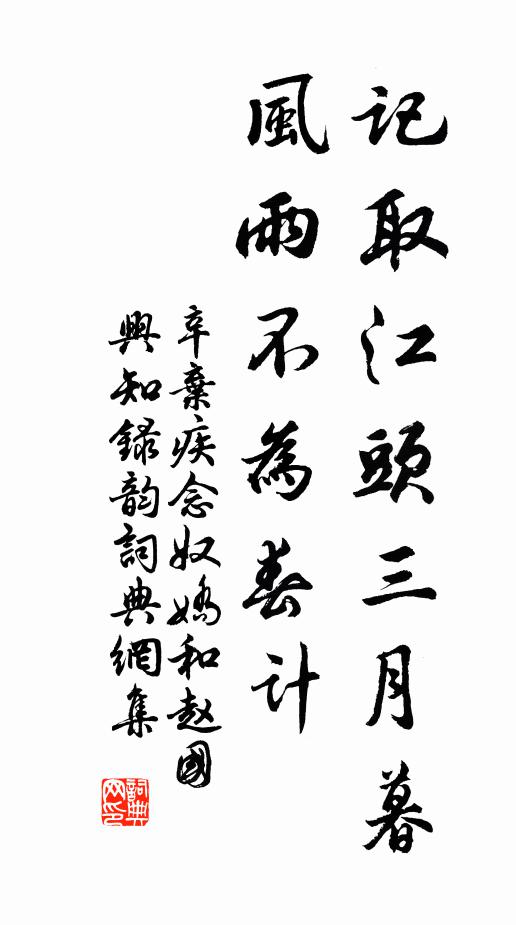 記取江頭三月暮
風雨不為春計
辛棄疾念奴嬌和赵國
興知録韵詞典網集
詞典
网印